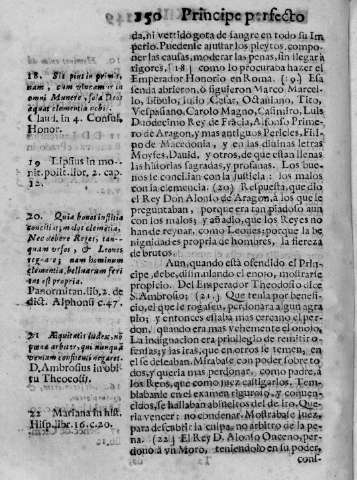 150 Principe perfecto
da, ni vertido gota de sangre en todo su Im
perio. Puedense ajustar los pleytos, compo-
ner las causas, moderar las penas, sin llegar à
rigores, [18] como lo procuraba hazer el
Emperador Honorio en Roma. (19.) Esa
senda abrieron, ò siguieron Marco Marcel-
lo, Bibulo, Julio Cesar, Octaviano, Tito,
Vespasiano, Carolo Magno, Casimiro, Luis
Duodecimo Rey de Francia, Alfonso Prime-
ro de Aragon, y mas antiguos Pericles, Filip-
po de Macedonia, y en las divinas letras
Moyses, David, y otros, de que estan llenas
las historias sagradas, y profanas. Los bue-
nos se concilian con la justicia: los malos
con la clemencia. (20.) Respuesta, que diò
el Rey Don Alonso de Aragon, à los que le
preguntaban, porque era tan piadoso aun
con los malos; y añadio, que los Reyes no
han de reynar, como Leones: porque la be
nignidad es propria de hombres, la fiereza
de brutos.
Aun, quando està ofendido el Prin-
cipe, debe, disimulando el enojo, mostrarse
propicio. Del Emperador Theodosio dice
S. Ambrosio; (21.) Que tenia por benefi-
cio, el que le rogasen, perdonàra algun agra
bio; y entonces estaba mas cercano el per-
don, quando era mas vehemente el enojo.
La indignacion era privilegio de remitir o-
fensas; y las iras, que en otros se temen, en
el se deseaban. Mirabase con poder sobre to
dos, y queria mas perdonar, como padre, à
los Reos, que como juez castigarlos. Tem-
blaban le en el examen riguroso, y conven-
cidos, se hallaban absueltos del de iro. Que-
ria vencer: no condenar. Mostrabase juez,
para descubrir la culpa, no arbitro de la pe
na. (22.) El Rey D. Alonso Onceno, per-
donò a vn Moro, teniendolo en su poder,
con-
18. Sis pius in primis,
nam, cum vincamur in
omni Munere, sola Deos
aequat clementia nobis.
Claud. in 4. Consul.
Honor.
19 Lipsius in mo-
nit. polit. lib. 2. cap.
12.
20. Quia bonos iustitia
conciliat; malos clementia.
Nec debere Reges, tan-
quam ursos, & Leones
regnare; nam hominum
clementia, belluarum feri
tas est propria.
Panormitan. lib. 2. de
dict. Alphonsi c. 47.
21 Aequitatis iudex, no
poenae arbiter, qui nunquã
veniam confitenti negaret.
D. Ambrosius in obi-
tu Theodosii.
22 Mariana in hist.
Hisp. libr. 16. c. 20.